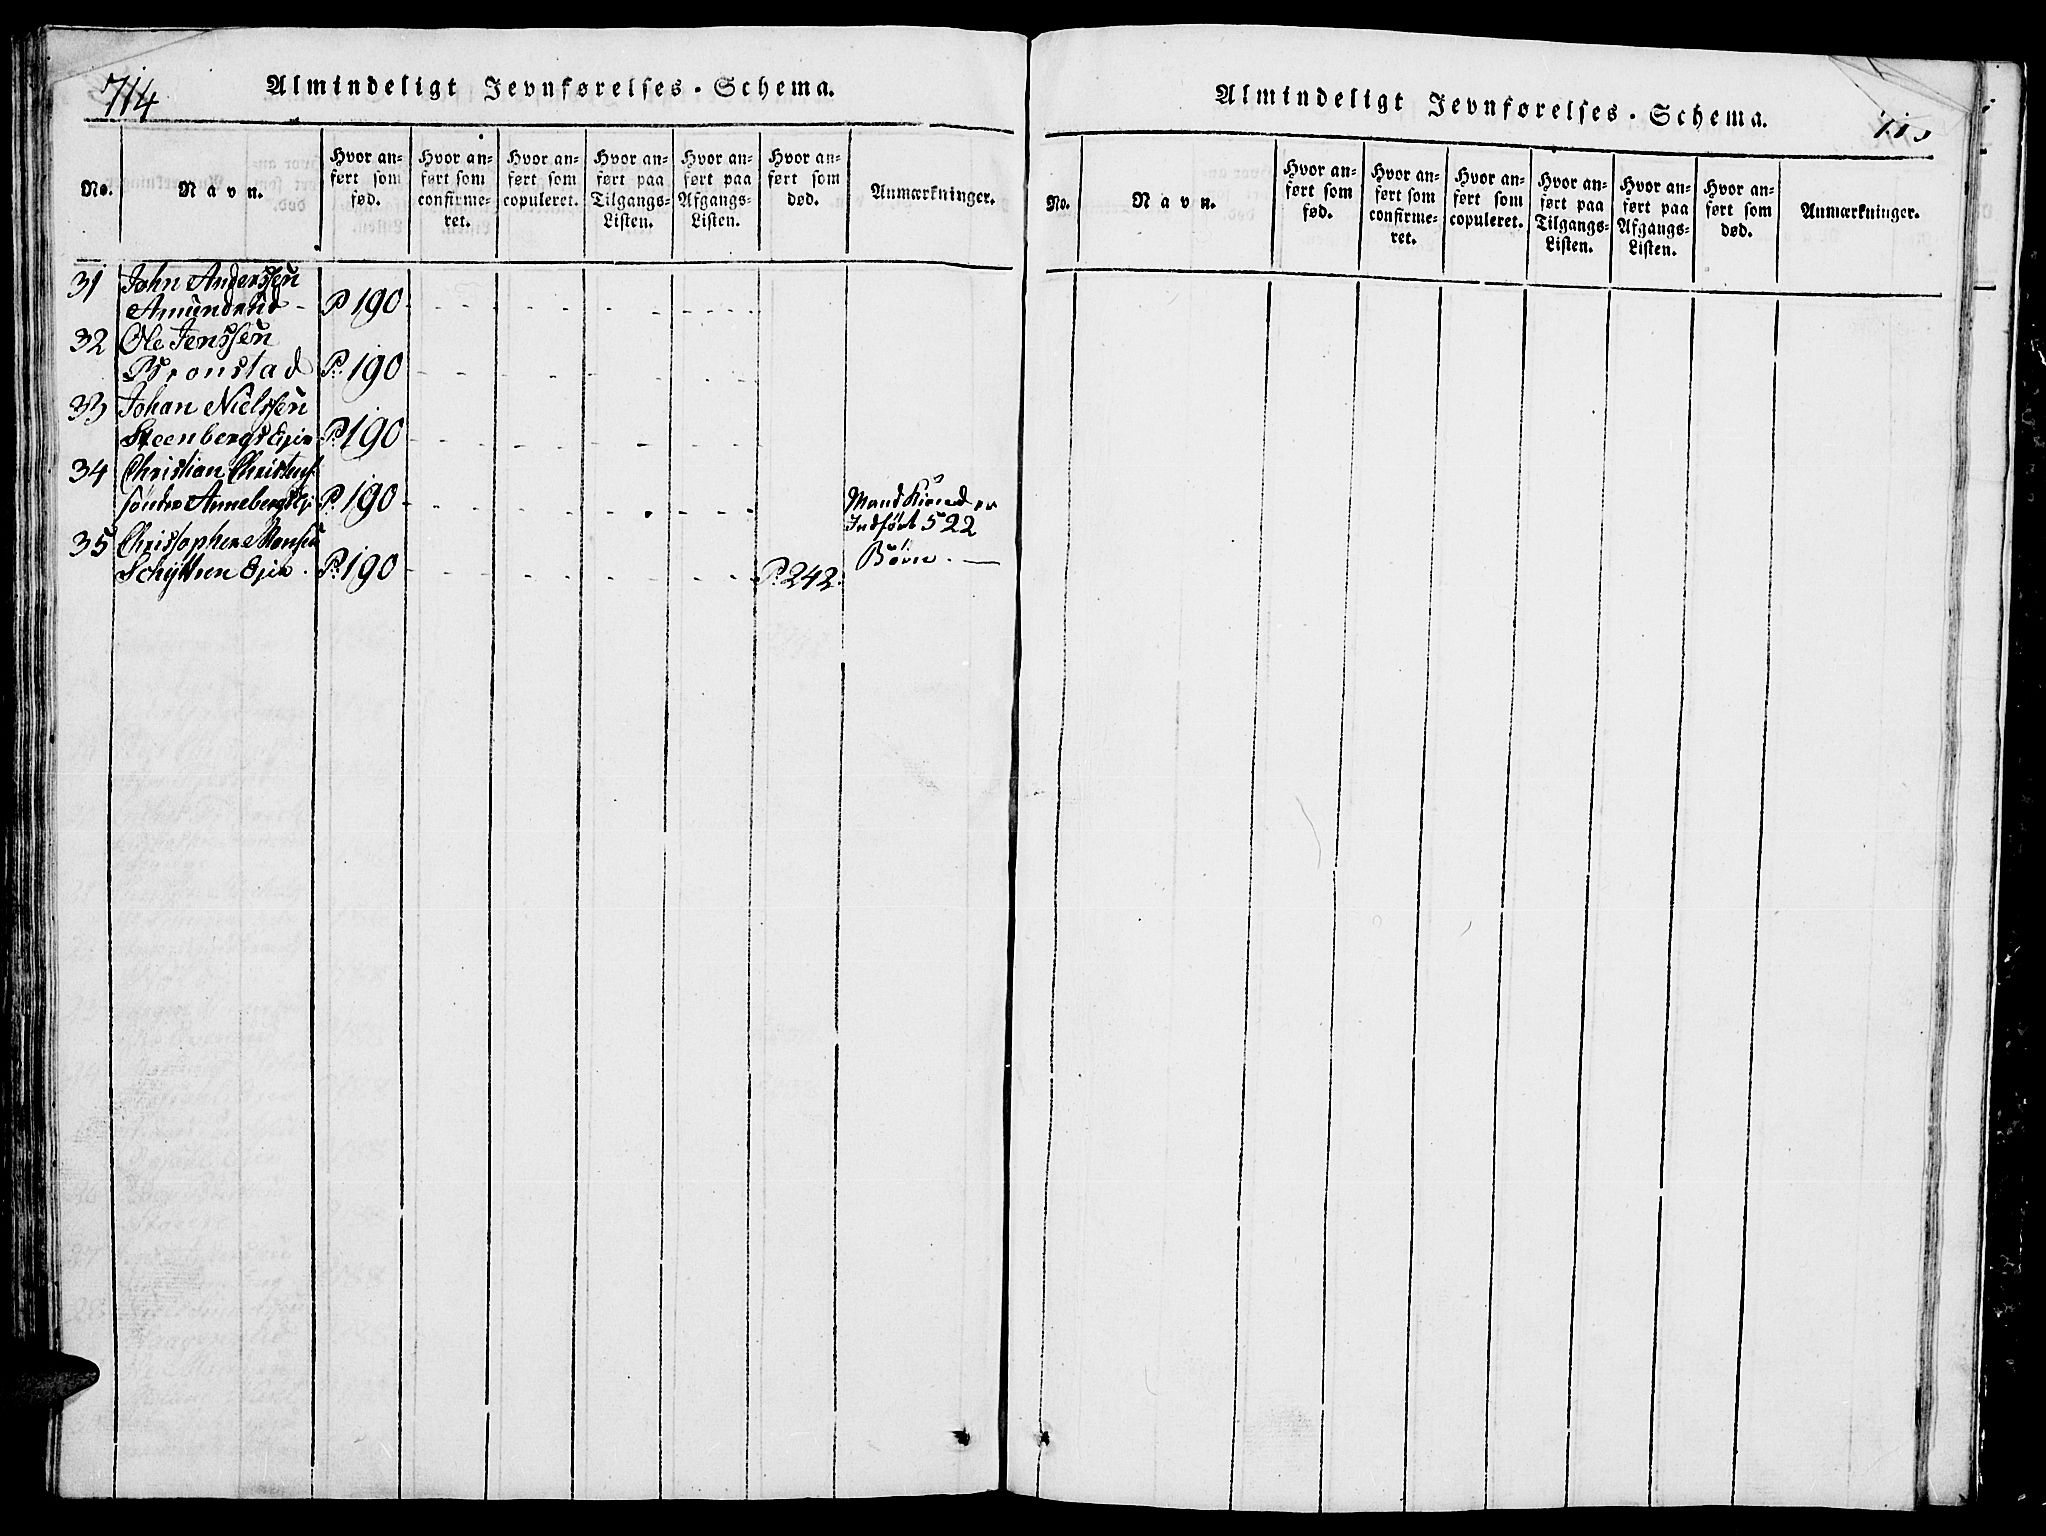 714
Almindeligt Jevnførelses-Schema.
No.
Navn.
Hvor an-
ført som
fød.
Hvor an-
ført som
confirme-
ret.
Hvor an-
ført som
copuleret.
Hvor an-
ført paa
Tilgangs-
Listen.
Hvor an-
ført paa
Afgangs-
Listen.
Hvor an-
ført som
død.
Anmærkninger.
31 John Anderssen
Amundrud P 190
32 Ole Jenssen
Bronstad P. 190
33 Johan Nielssen
Steenbergs Ejer P. 190
34 Christian
Søndre P. 190
Indført 522
35 Christopher
P. 190 P. 242
Børn.
Almindeligt Jevnførelses-Schema.
No.
Navn.
Hvor an-
ført som
fød.
Hvor an-
ført som
confirme-
ret.
Hvor an-
ført som
copuleret.
Hvor an-
ført paa
Tilgangs-
Listen.
Hvor an-
ført paa
Afgangs-
Listen.
Hvor an-
ført som
død.
Anmærkninger.